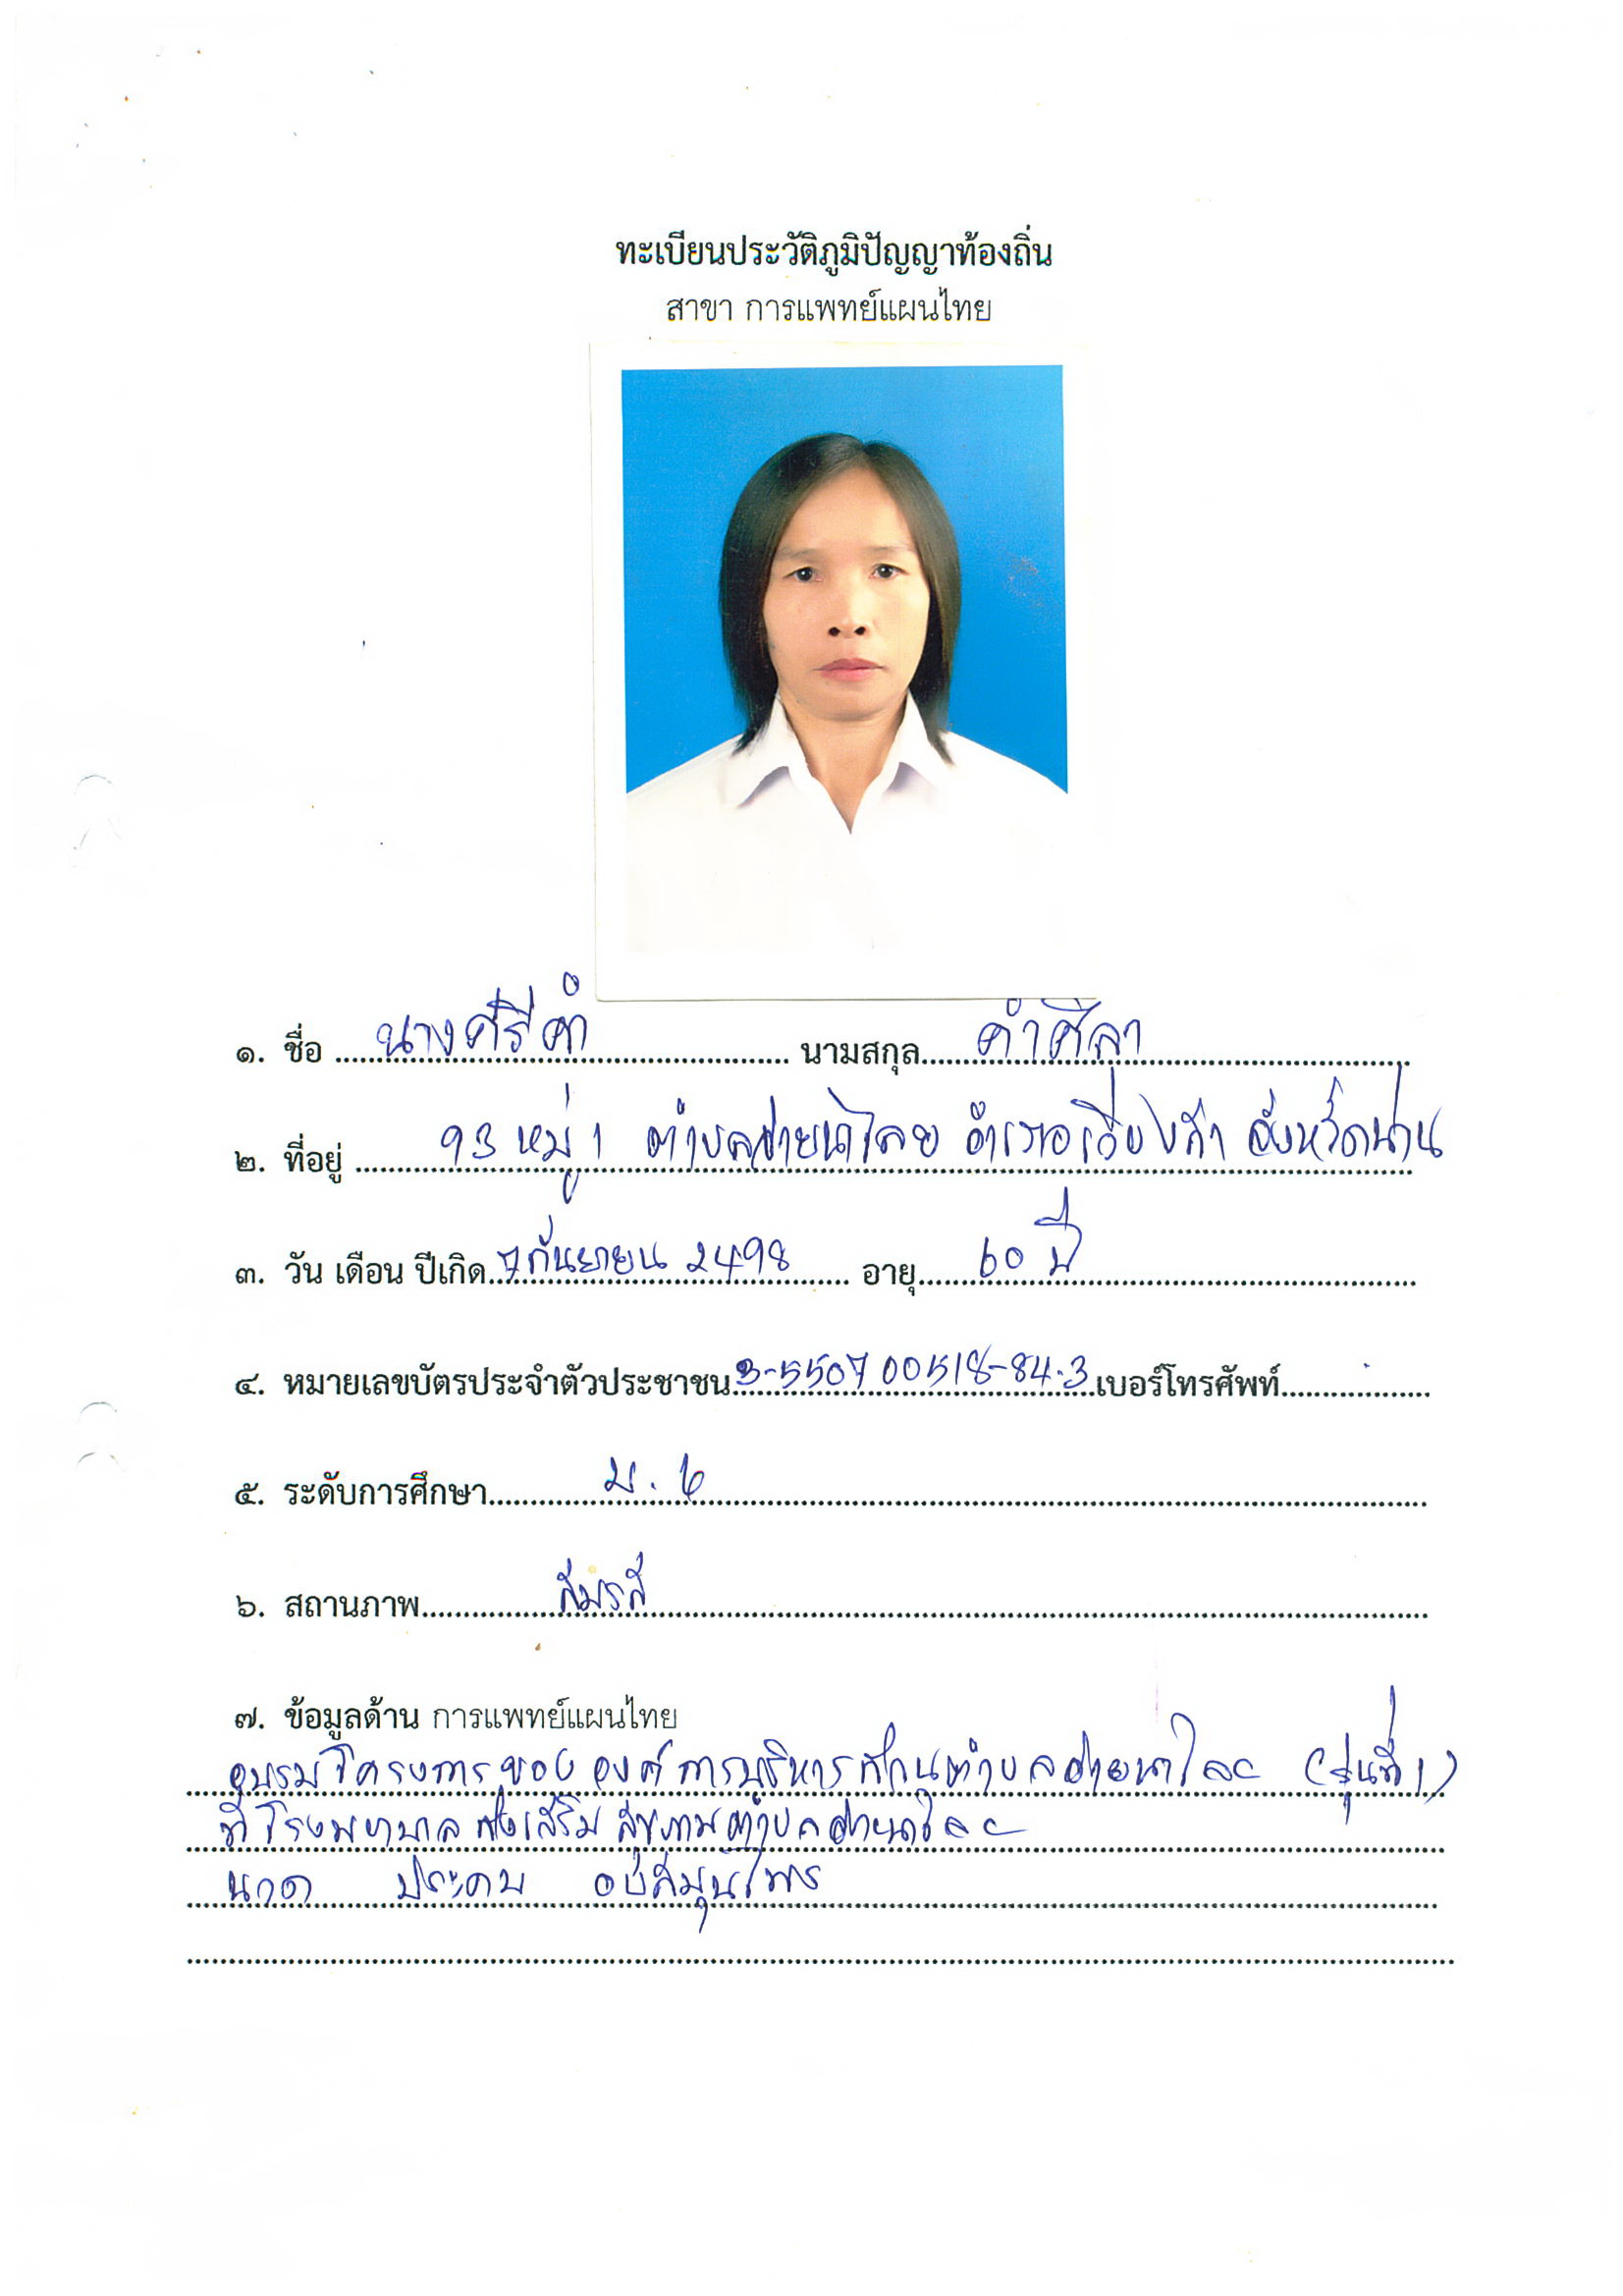 ทะเบียนประวัติภูมิปัญญาท้องถิ่น
สาขา การแพทย์แผนไทย
๑. ชื่อ นางศรีคำ นามสกุล คำศีลา
๒. ที่อยู่ 93 หมู่ 1 ตำบลส่วยนาเลย อำเภอเวียงสา จังหวัดน่าน
๓. วัน เดือน ปีเกิด 7 กันยายน 2498 อายุ 60 ปี
๔. หมายเลขบัตรประจำตัวประชาชน 3-5507 00518-84-3 เบอร์โทรศัพท์
๕. ระดับการศึกษา ม.6
๖. สถานภาพ สมรส
๗. ข้อมูลด้าน การแพทย์แผนไทย
อบรมโครงการของ องค์การบริหารส่วนตำบล (รุ่นที่ 1)
ที่โรงพยาบาลส่งเสริมสุขภาพตำบล
นวด ประคบ อบสมุนไพร